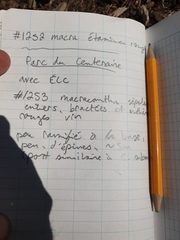 #1252 macra Étamines rouges
Parc du Centenaire
avec ÉLC
#1253 macracantha, sépales
entiers, bractées et
rouges vin
peu ramifié à la base,
peu d'épines, ~5m
port similaire à